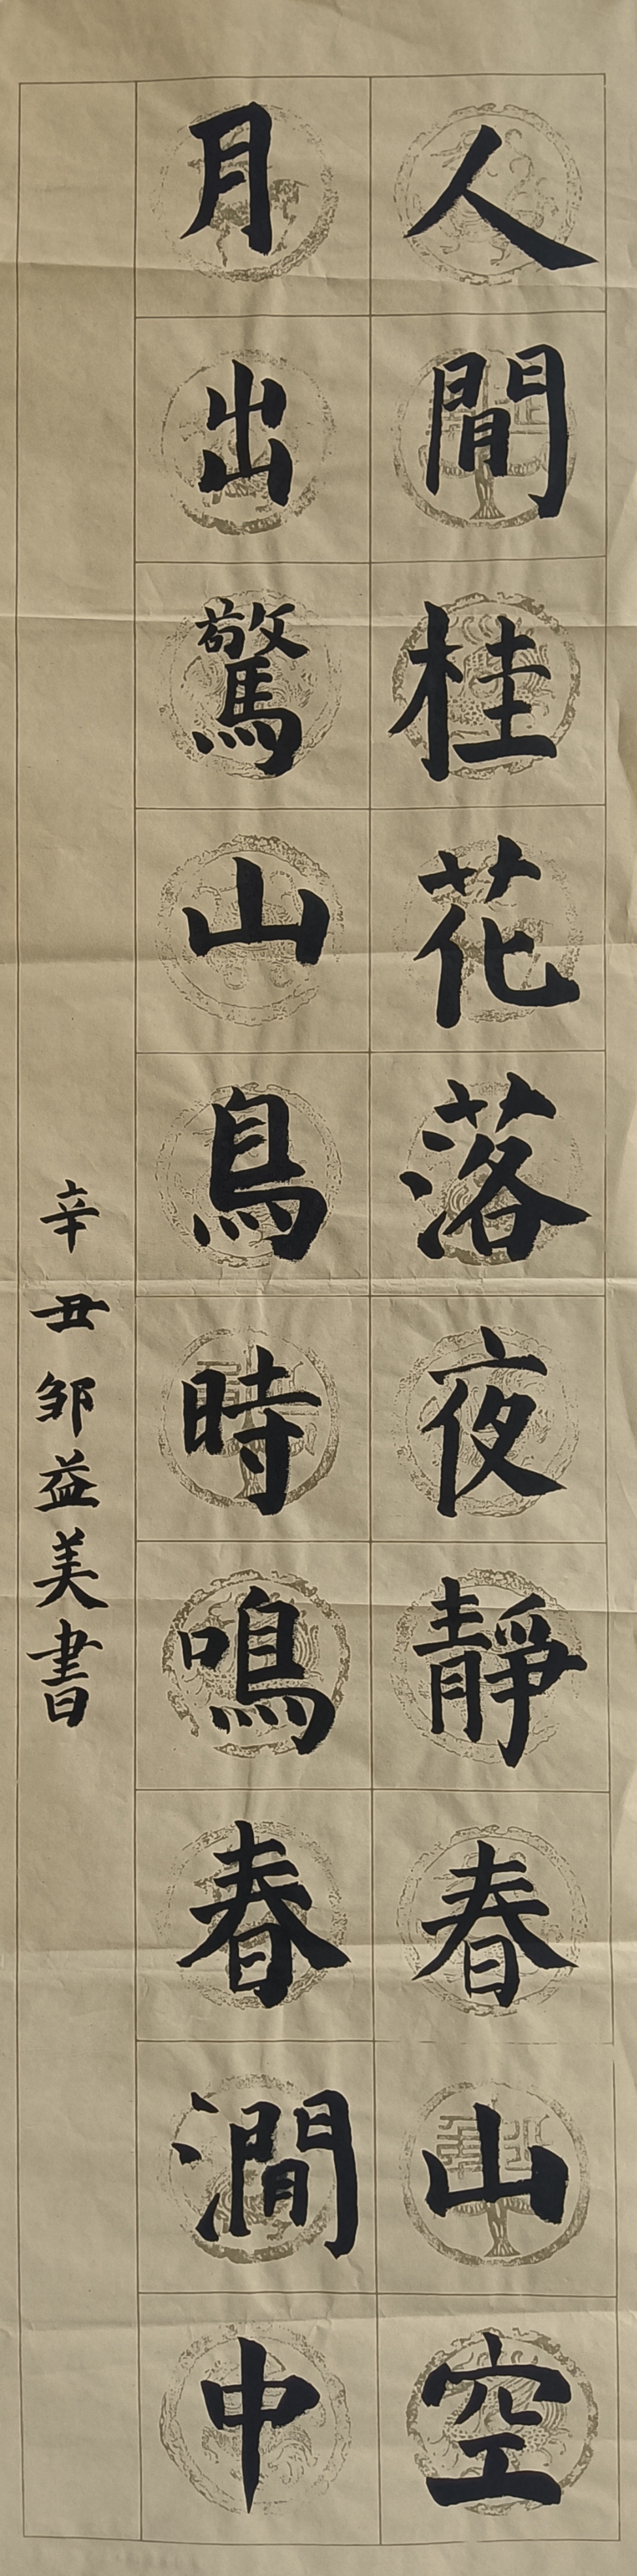 人閒桂花落夜靜春山空
月出驚山鳥時鳴春澗中
辛丑邹益美書